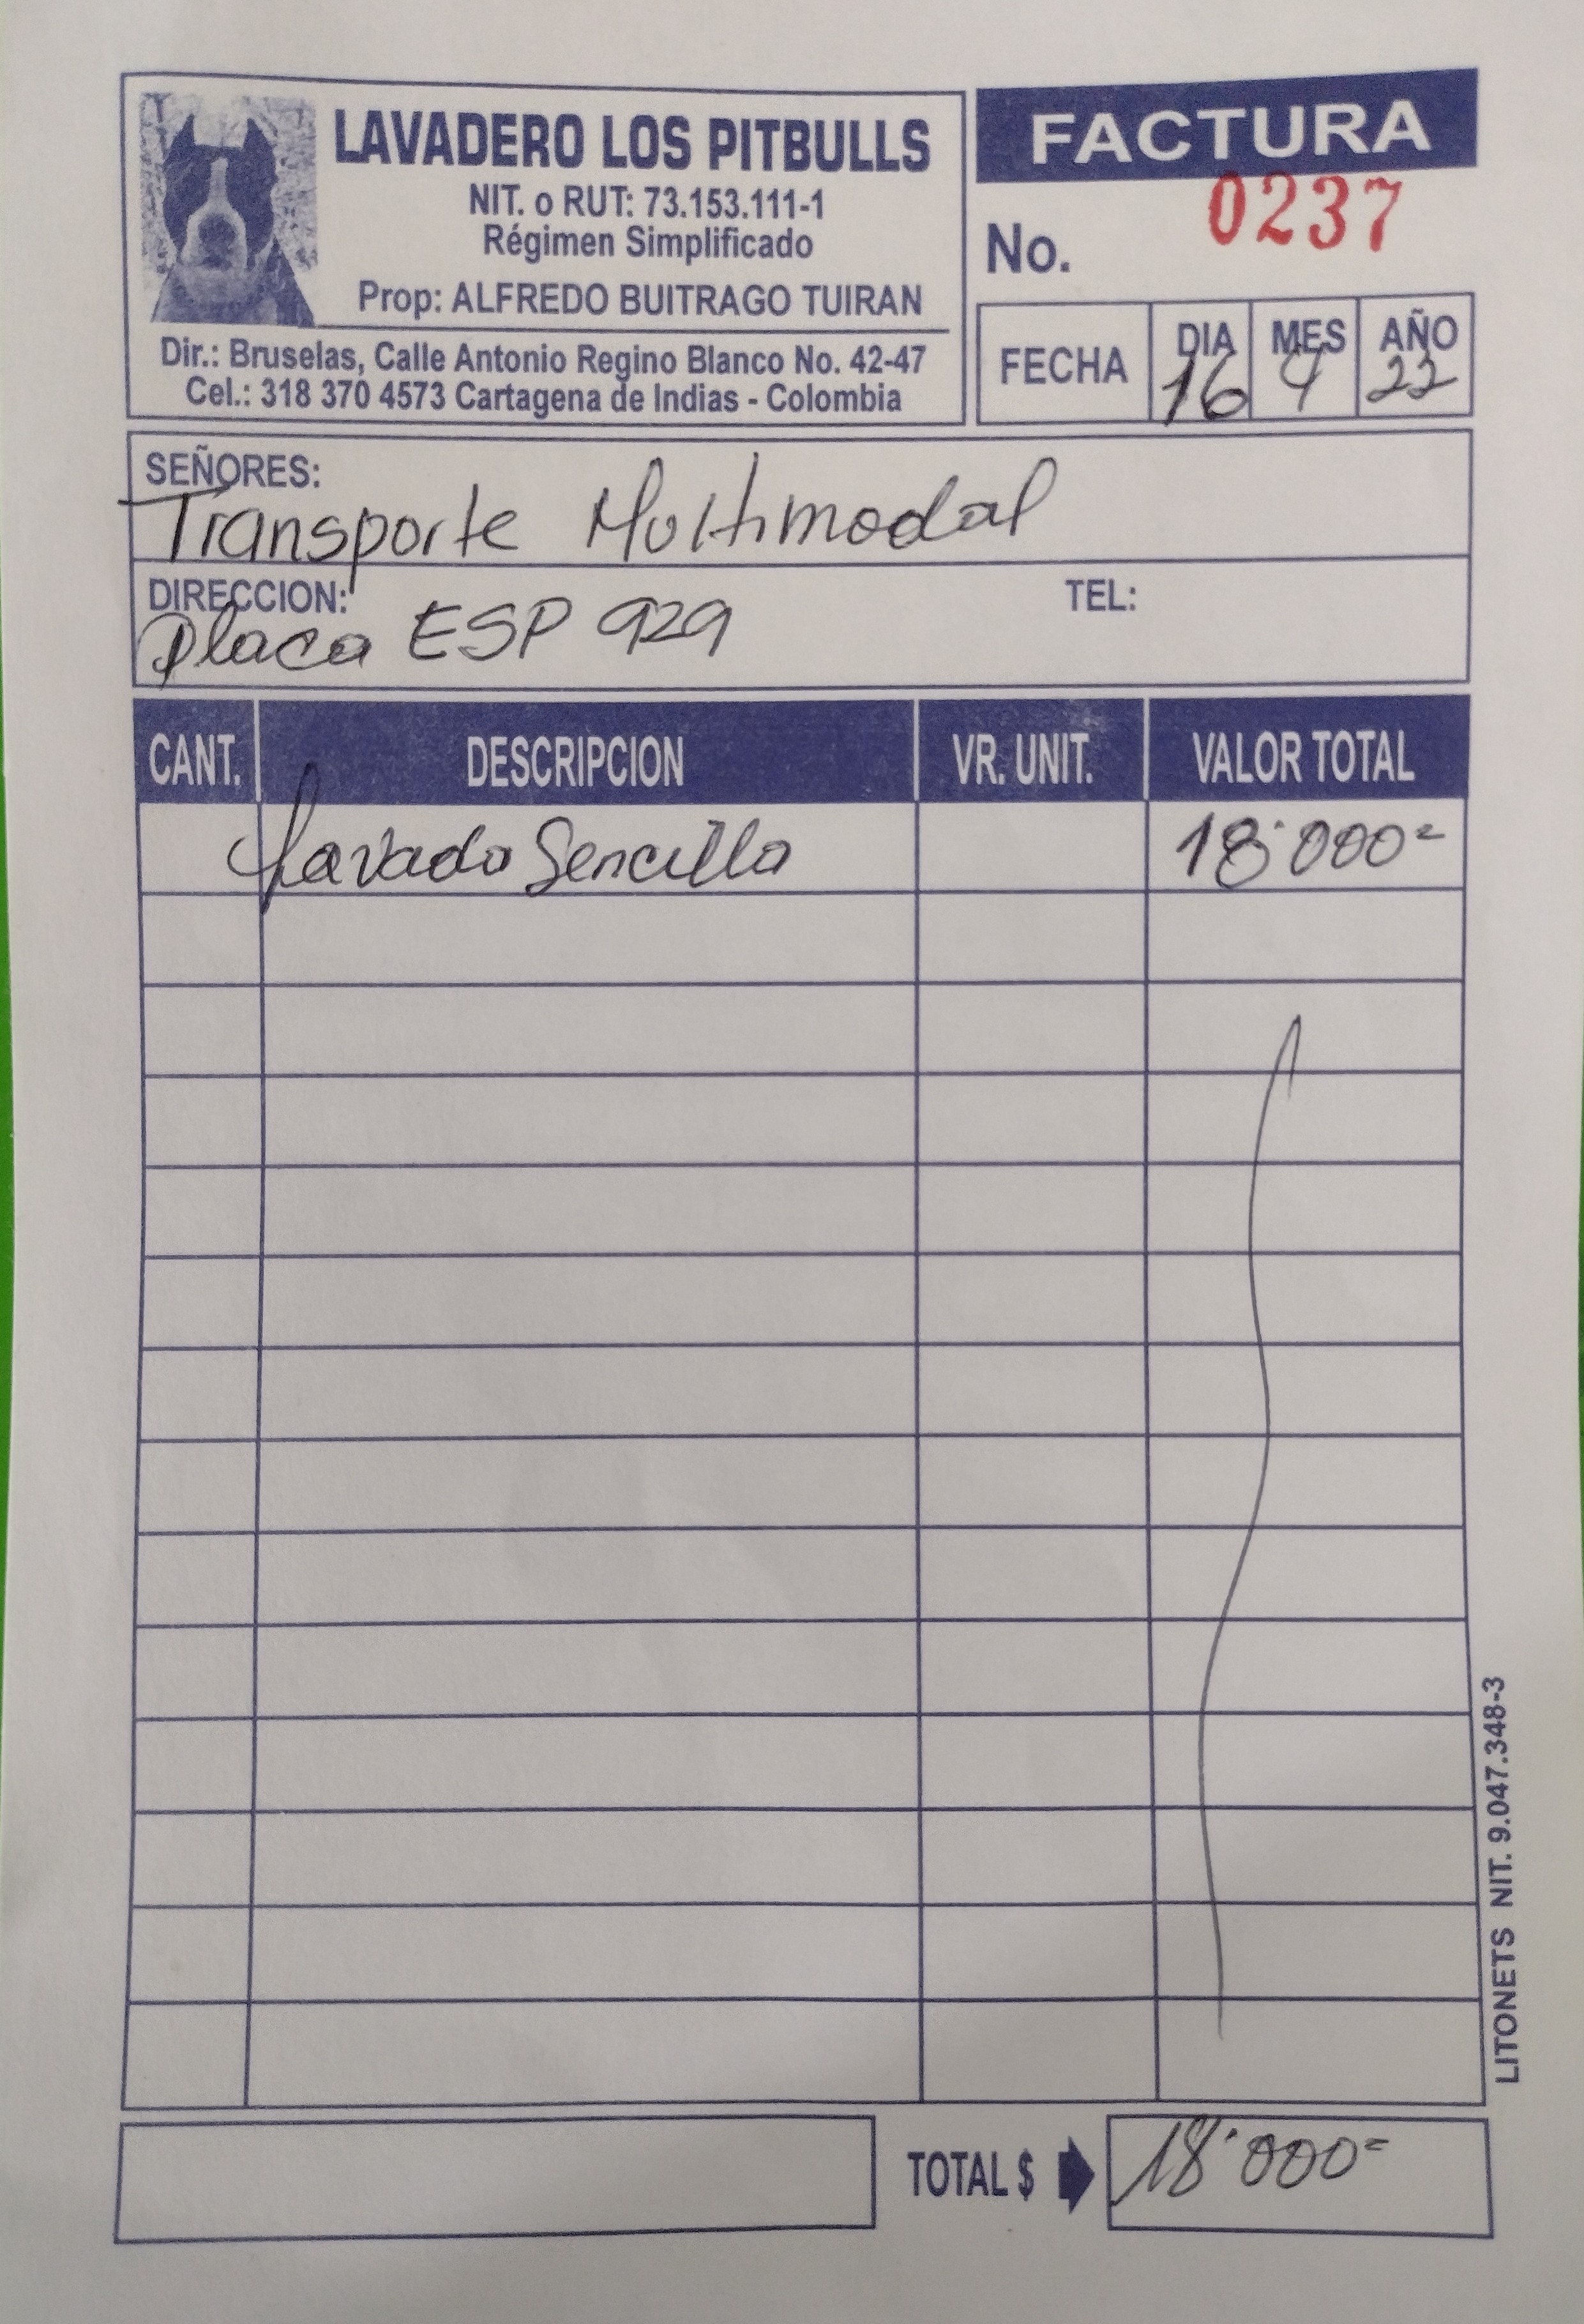 LAVADERO LOS PITBULLS
NIT. o RUT: 73.153.111-1
Régimen Simplificado
Prop: ALFREDO BUITRAGO TUIRAN
Dir.: Bruselas, Calle Antonio Regino Blanco No. 42-47
Cel.: 318 370 4573 Cartagena de Indias - Colombia
FACTURA
No. 0237
FECHA DIA MES AÑO
16 4 22
SEÑORES:
Transporte Multimodal
DIRECCION: TEL:
Placa ESP 929
CANT. DESCRIPCION VR. UNIT. VALOR TOTAL
Lavado Sencillo 18'000=
TOTAL $ 18'000=
LITONETS NIT. 9.047.348-3